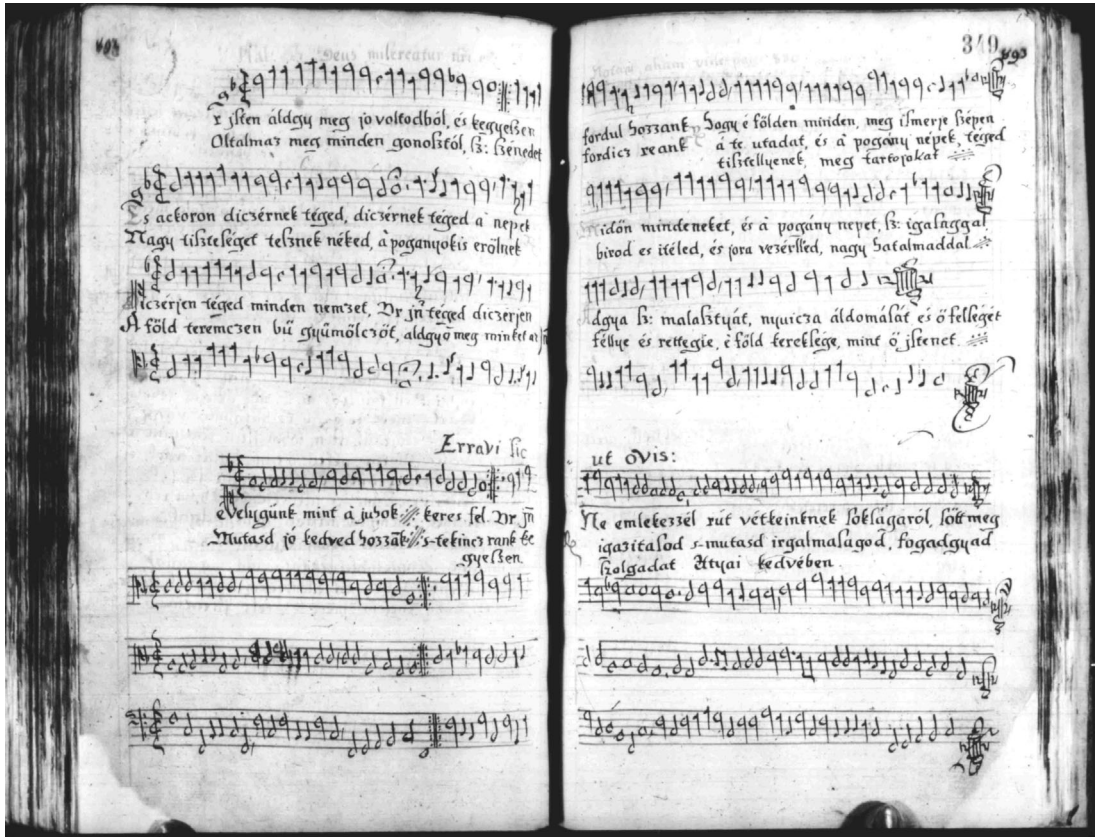 349
Ur jsten áldgy meg jo voltodból, és kegyessen
Oltalmaz meg minden gonosztól, sz: szénedet
Es ackoron diczérnek téged, diczérnek téged a nepek
Nagy tiszteléget tesznek néked, à poganyokis erölnek
Diczérjen téged minden nemzet, Vr jñ téged diczérjen
A föld teremczen bü gyümölczöt, aldgyō meg minket az
Erravi sic
evelygünk mint à juhok keres fel Vr jñ
Mutasd jo kedved hozzāk s-tekincz rank ke
gyessen
fordul hozzank hogy é földen minden, meg ismerje szépen
fordicz reank à te utadat, és à pogány népek, téged
tisztellyenek, meg tartozokat
midön mindeneket, és à pogány nepet, sz: igasággal
birod es itéled, és jora vezérlled, nagy hatalmaddal
Adgya sz: malasztyát, nyuicza áldomását et ö felségét
féllye és rettegje, è föld kereksége, mint ö jstenet.
ut oVis:
Ne emlekezzél rut vétkeinknek sokságaról, sött meg
igazitasod s-mutasd irgalmasagod, fogadgyad
szolgadat Atyai kedvében